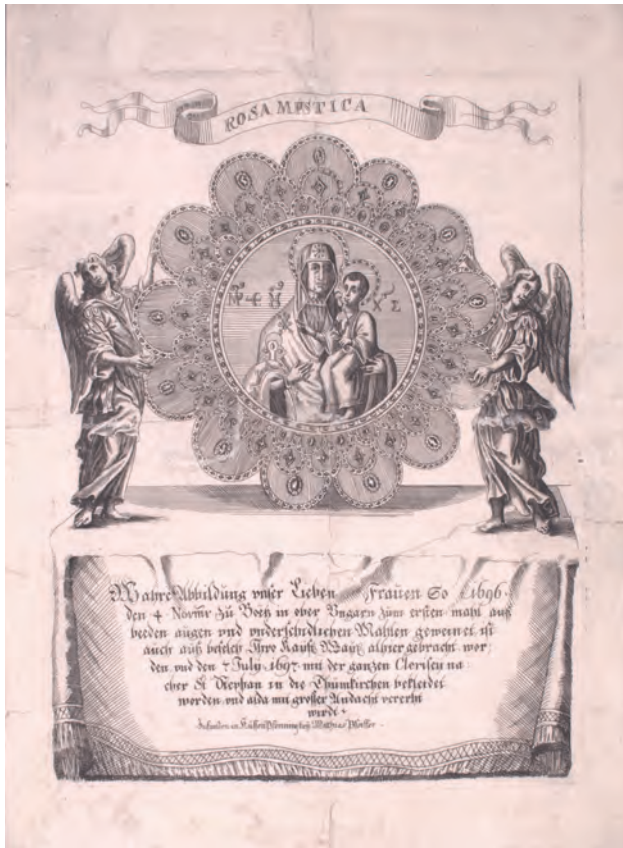 ROSA MISTICA
Wahre Abbildung vnser Lieben Frauen So 1696.
den 4 Novmr zu Boetz in ober Vngarn zum ersten mahl auß
beeden augen vnd vnderschidlichen Mahlen geweinet ist
auch auß befelch Ihro Kayß Mayß alhier gebracht wor
den vnd den 7 July 1697 mit der ganzen Clerisey na
cher St Stephan in die Thumkirchen bekleidet
worden vnd alda mit grosser Andacht verehrt
wirdt
Zufinden in Küssenpfenning bey Mathias Pfeffer